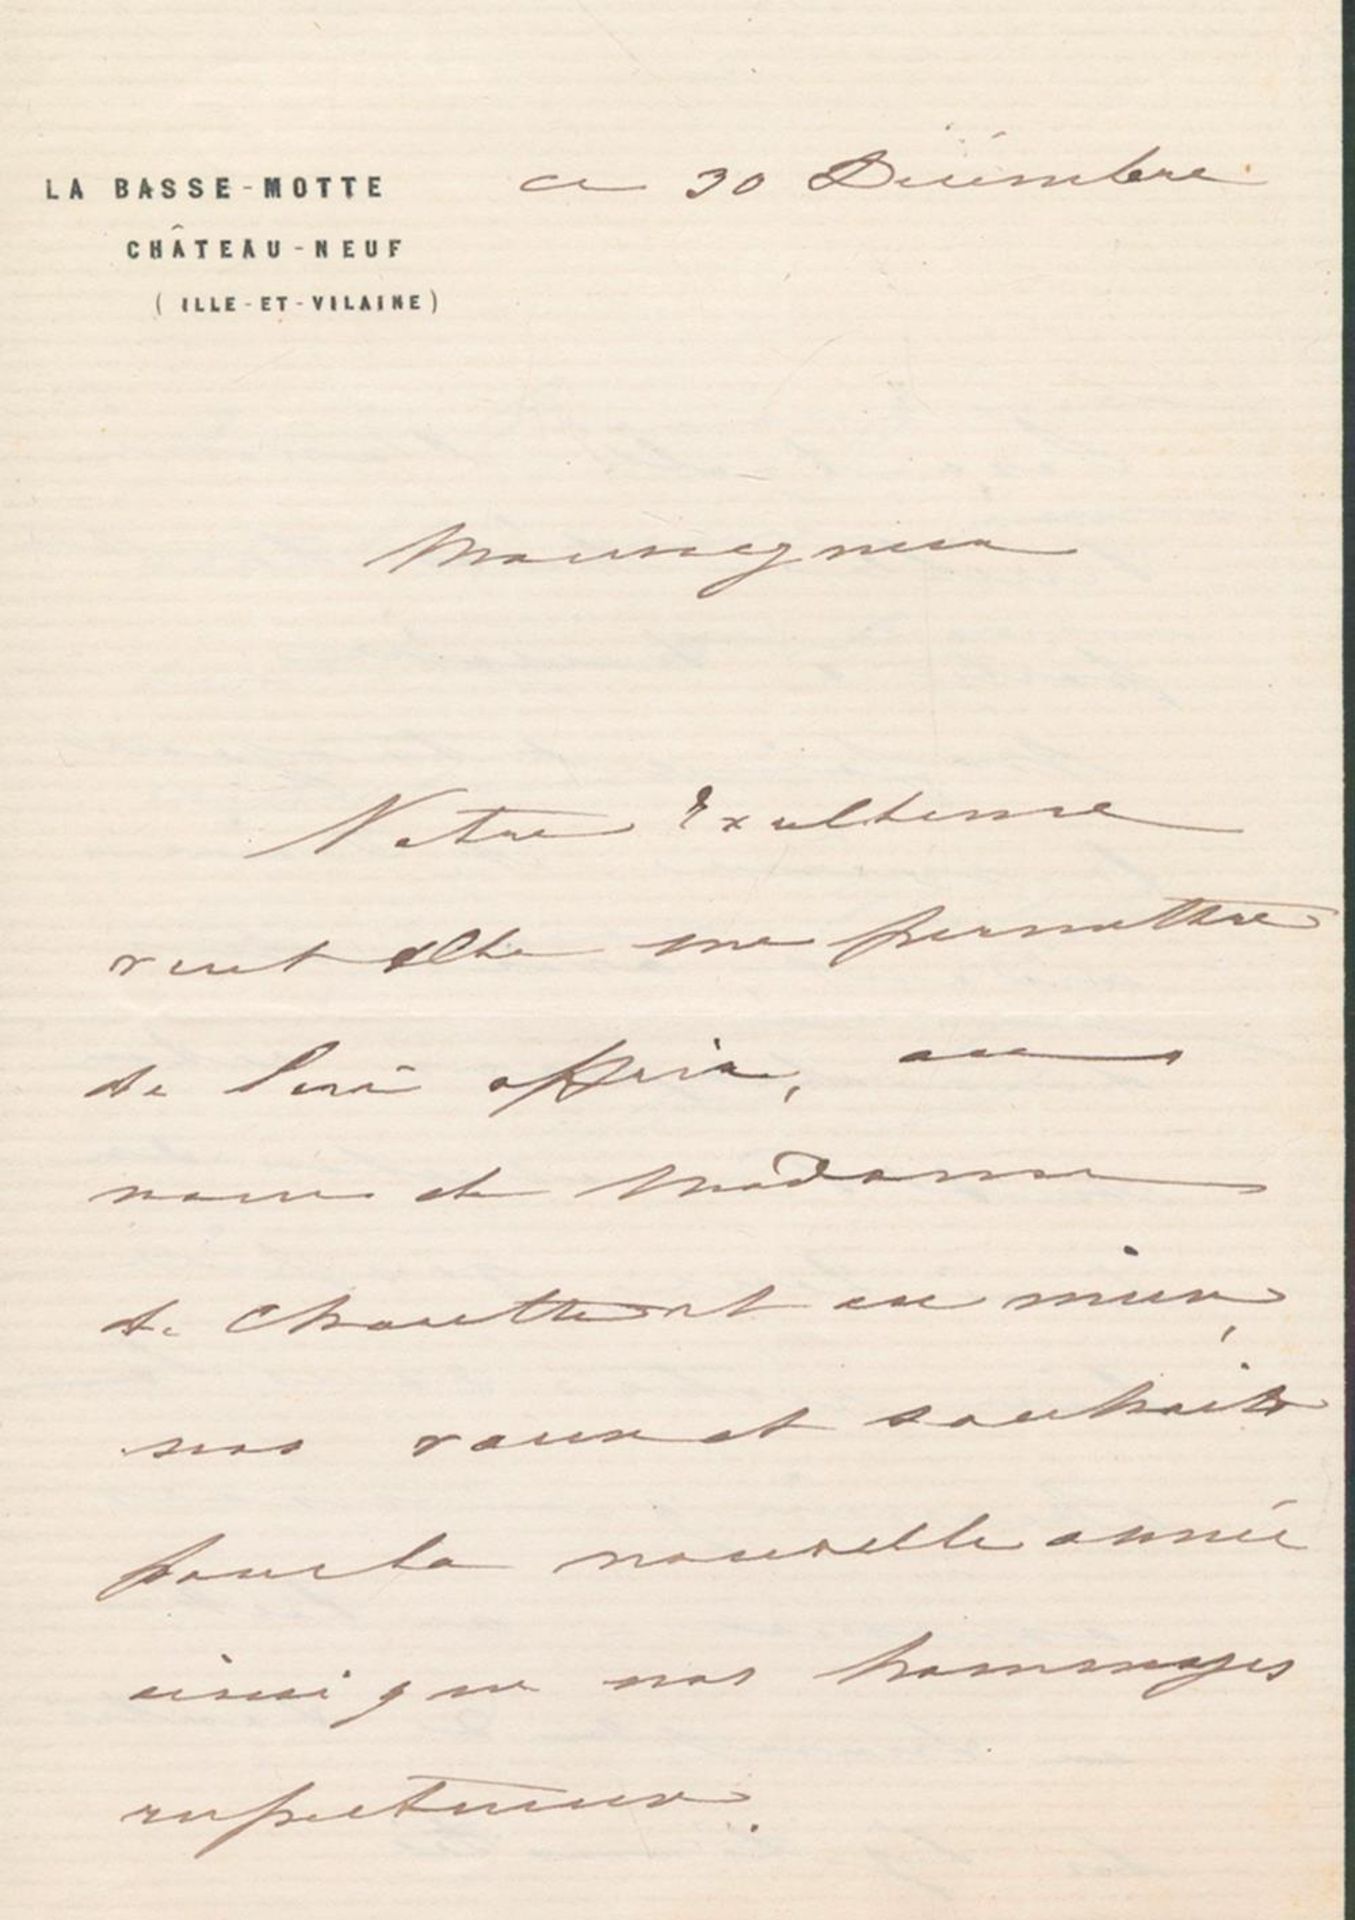 LA BASSE-MOTTE
CHÂTEAU-NEUF
(ILLE-ET-VILAINE)
ce 30 Décembre
Monseigneur
Votre Excellence
veut elle me permettre
de lui offrir, au
nom de Madame
de Charette et au mien,
nos vœux et souhaits
pour la nouvelle année
ainsi que nos hommages
respectueux.